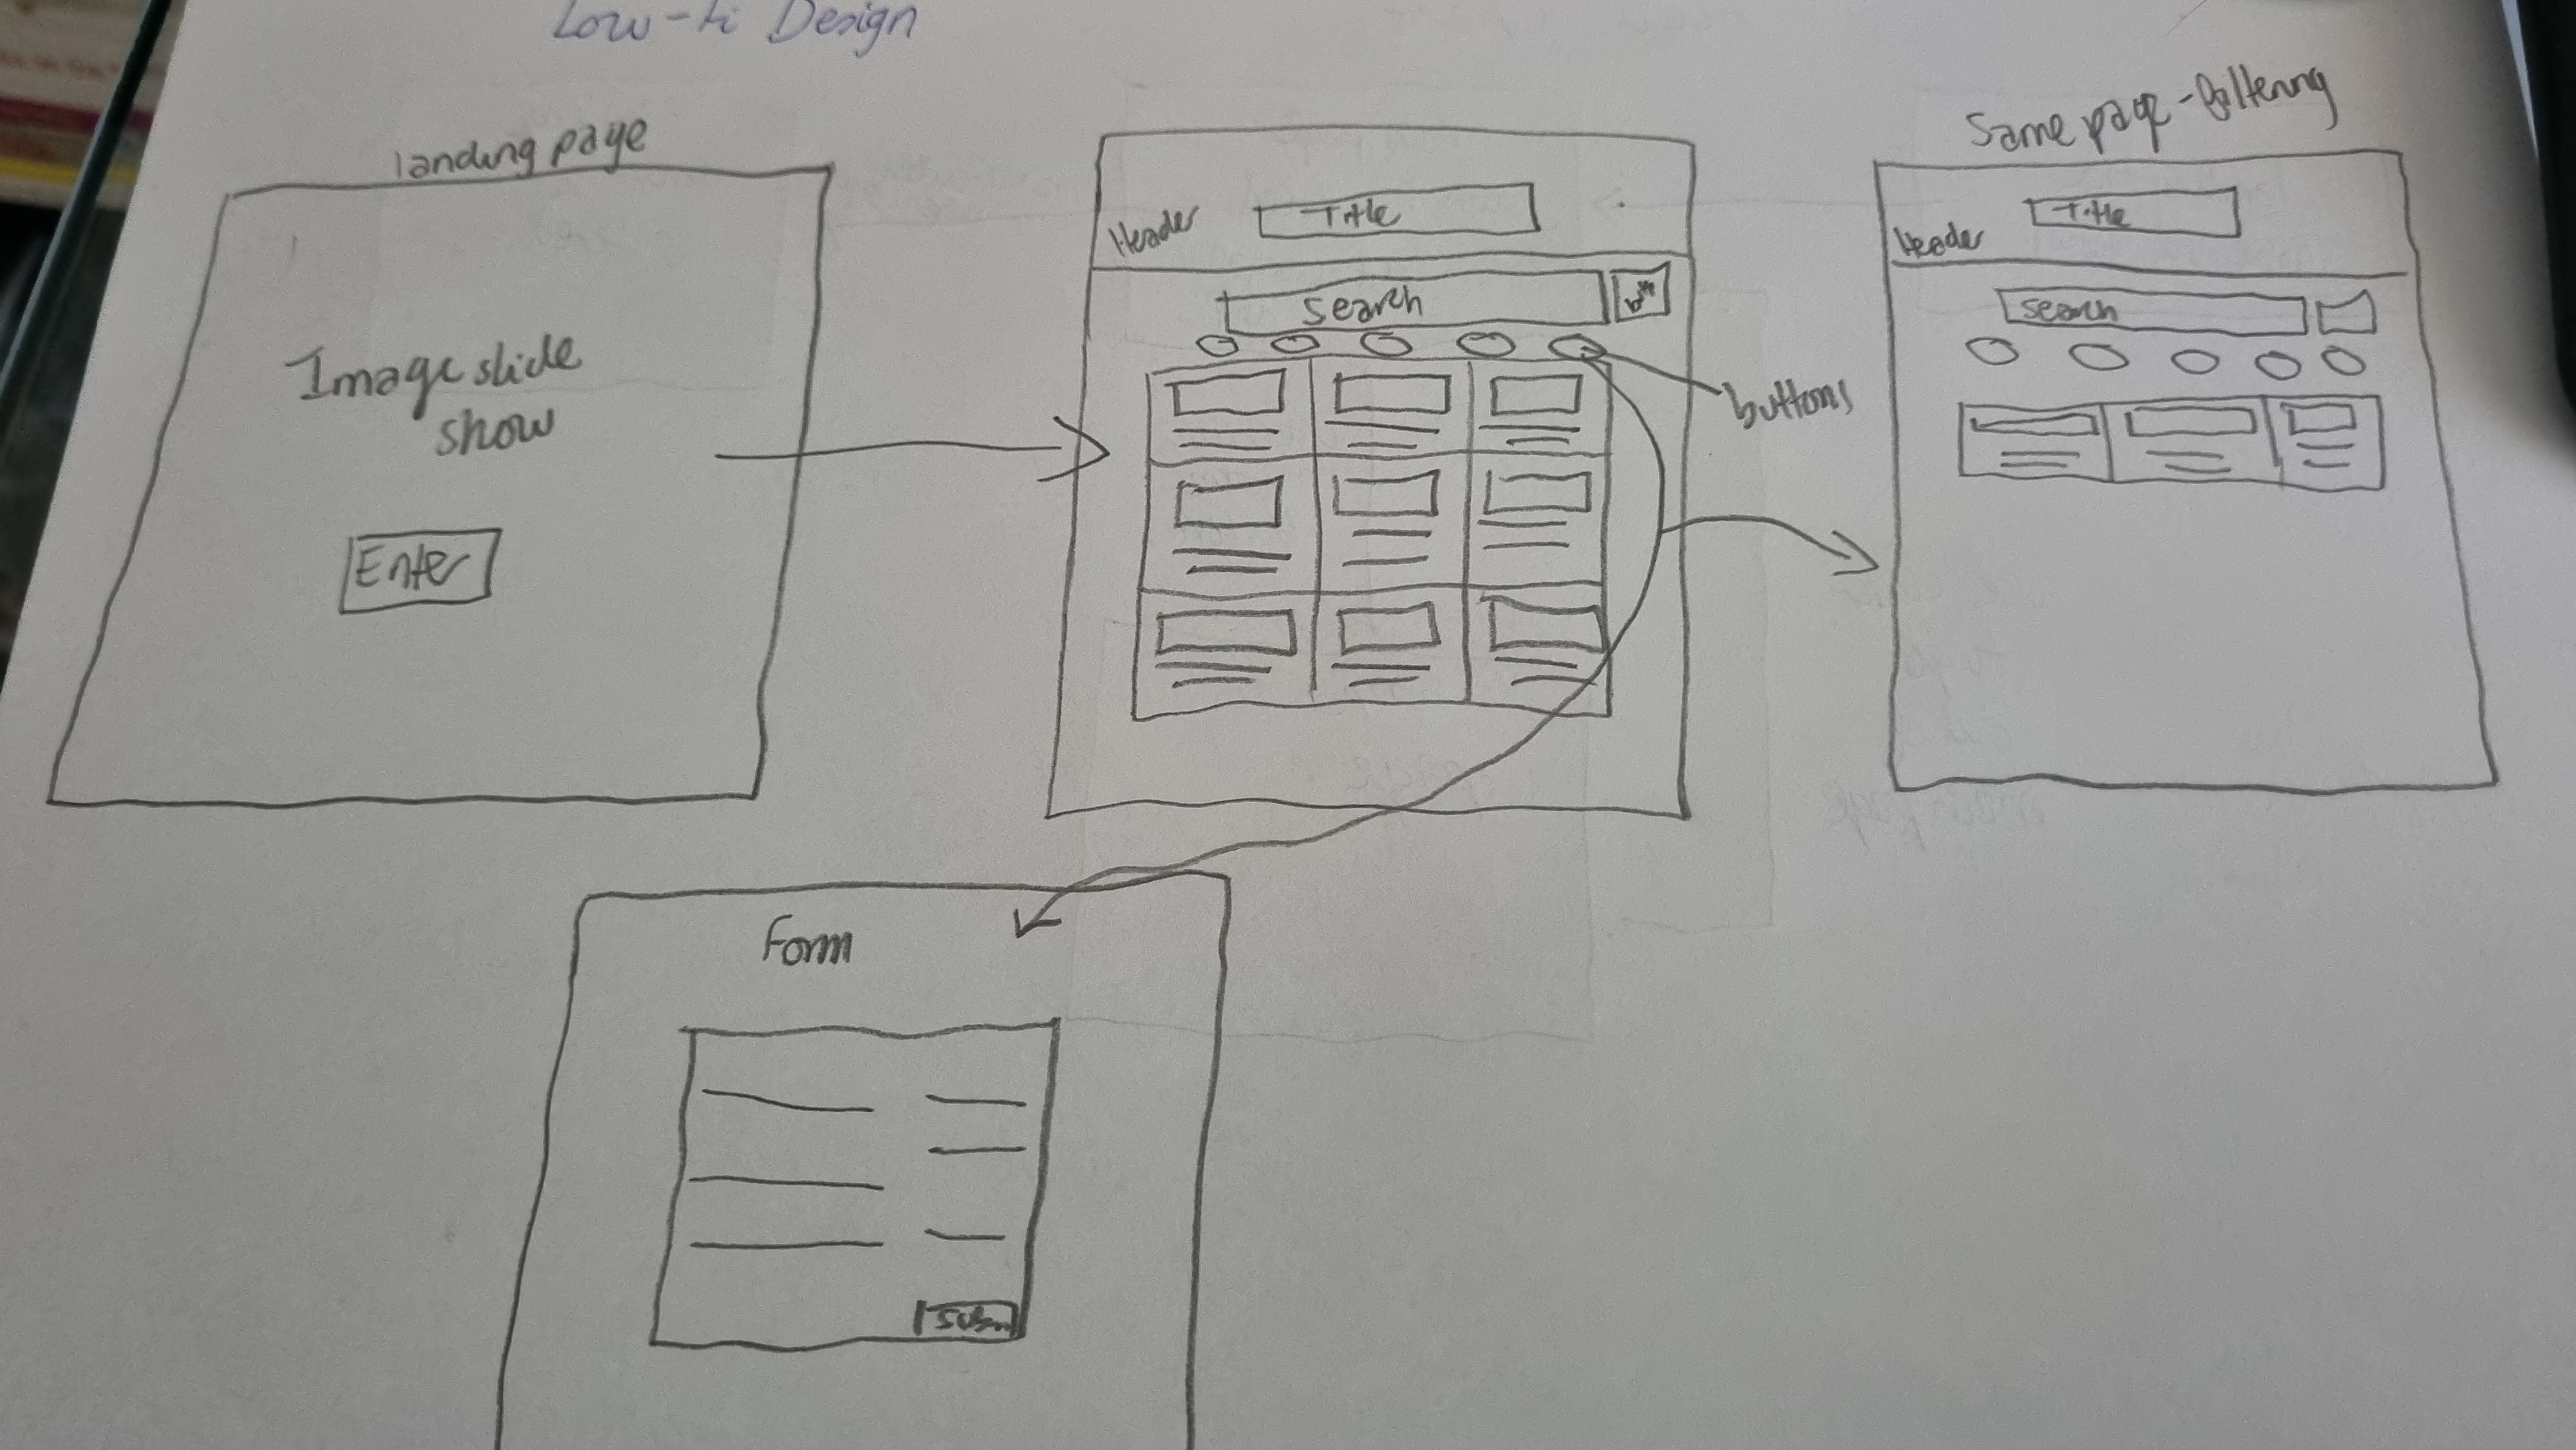 Low-fi Design
landing page
Image slide
show
Enter
Header
Title
Search
buttons
Same page - filtering
Header
Title
Search
Form